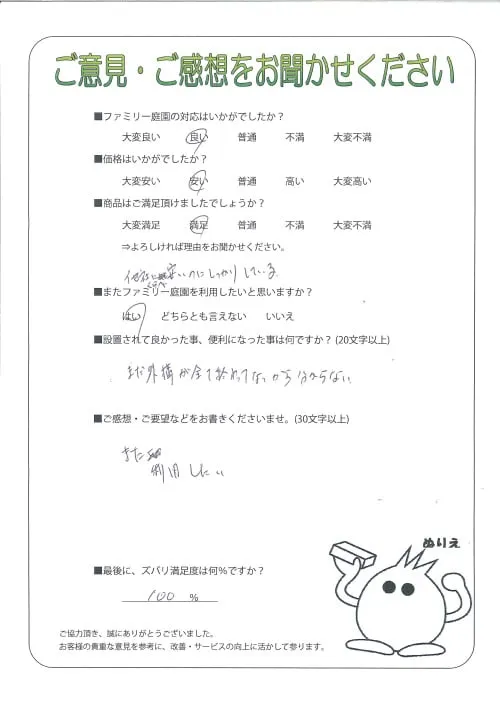 ご意見・ご感想をお聞かせください
■ファミリー庭園の対応はいかがでしたか？
大変良い 良い 普通 不満 大変不満
■価格はいかがでしたか？
大変安い 安い 普通 高い 大変高い
■商品はご満足頂けましたでしょうか？
大変満足 満足 普通 不満 大変不満
⇒よろしければ理由をお聞かせください。
他社に比べ安いのにしっかりしている
■またファミリー庭園を利用したいと思いますか？
はい どちらとも言えない いいえ
■設置されて良かった事、便利になった事は何ですか？(20文字以上)
まだ外構が全て終わってないから分からない
■ご感想・ご要望などをお書きくださいませ。(30文字以上)
また
利用したい
ぬりえ
■最後に、ズバリ満足度は何%ですか？
100 %
ご協力頂き、誠にありがとうございました。
お客様の貴重な意見を参考に、改善・サービスの向上に活かして参ります。